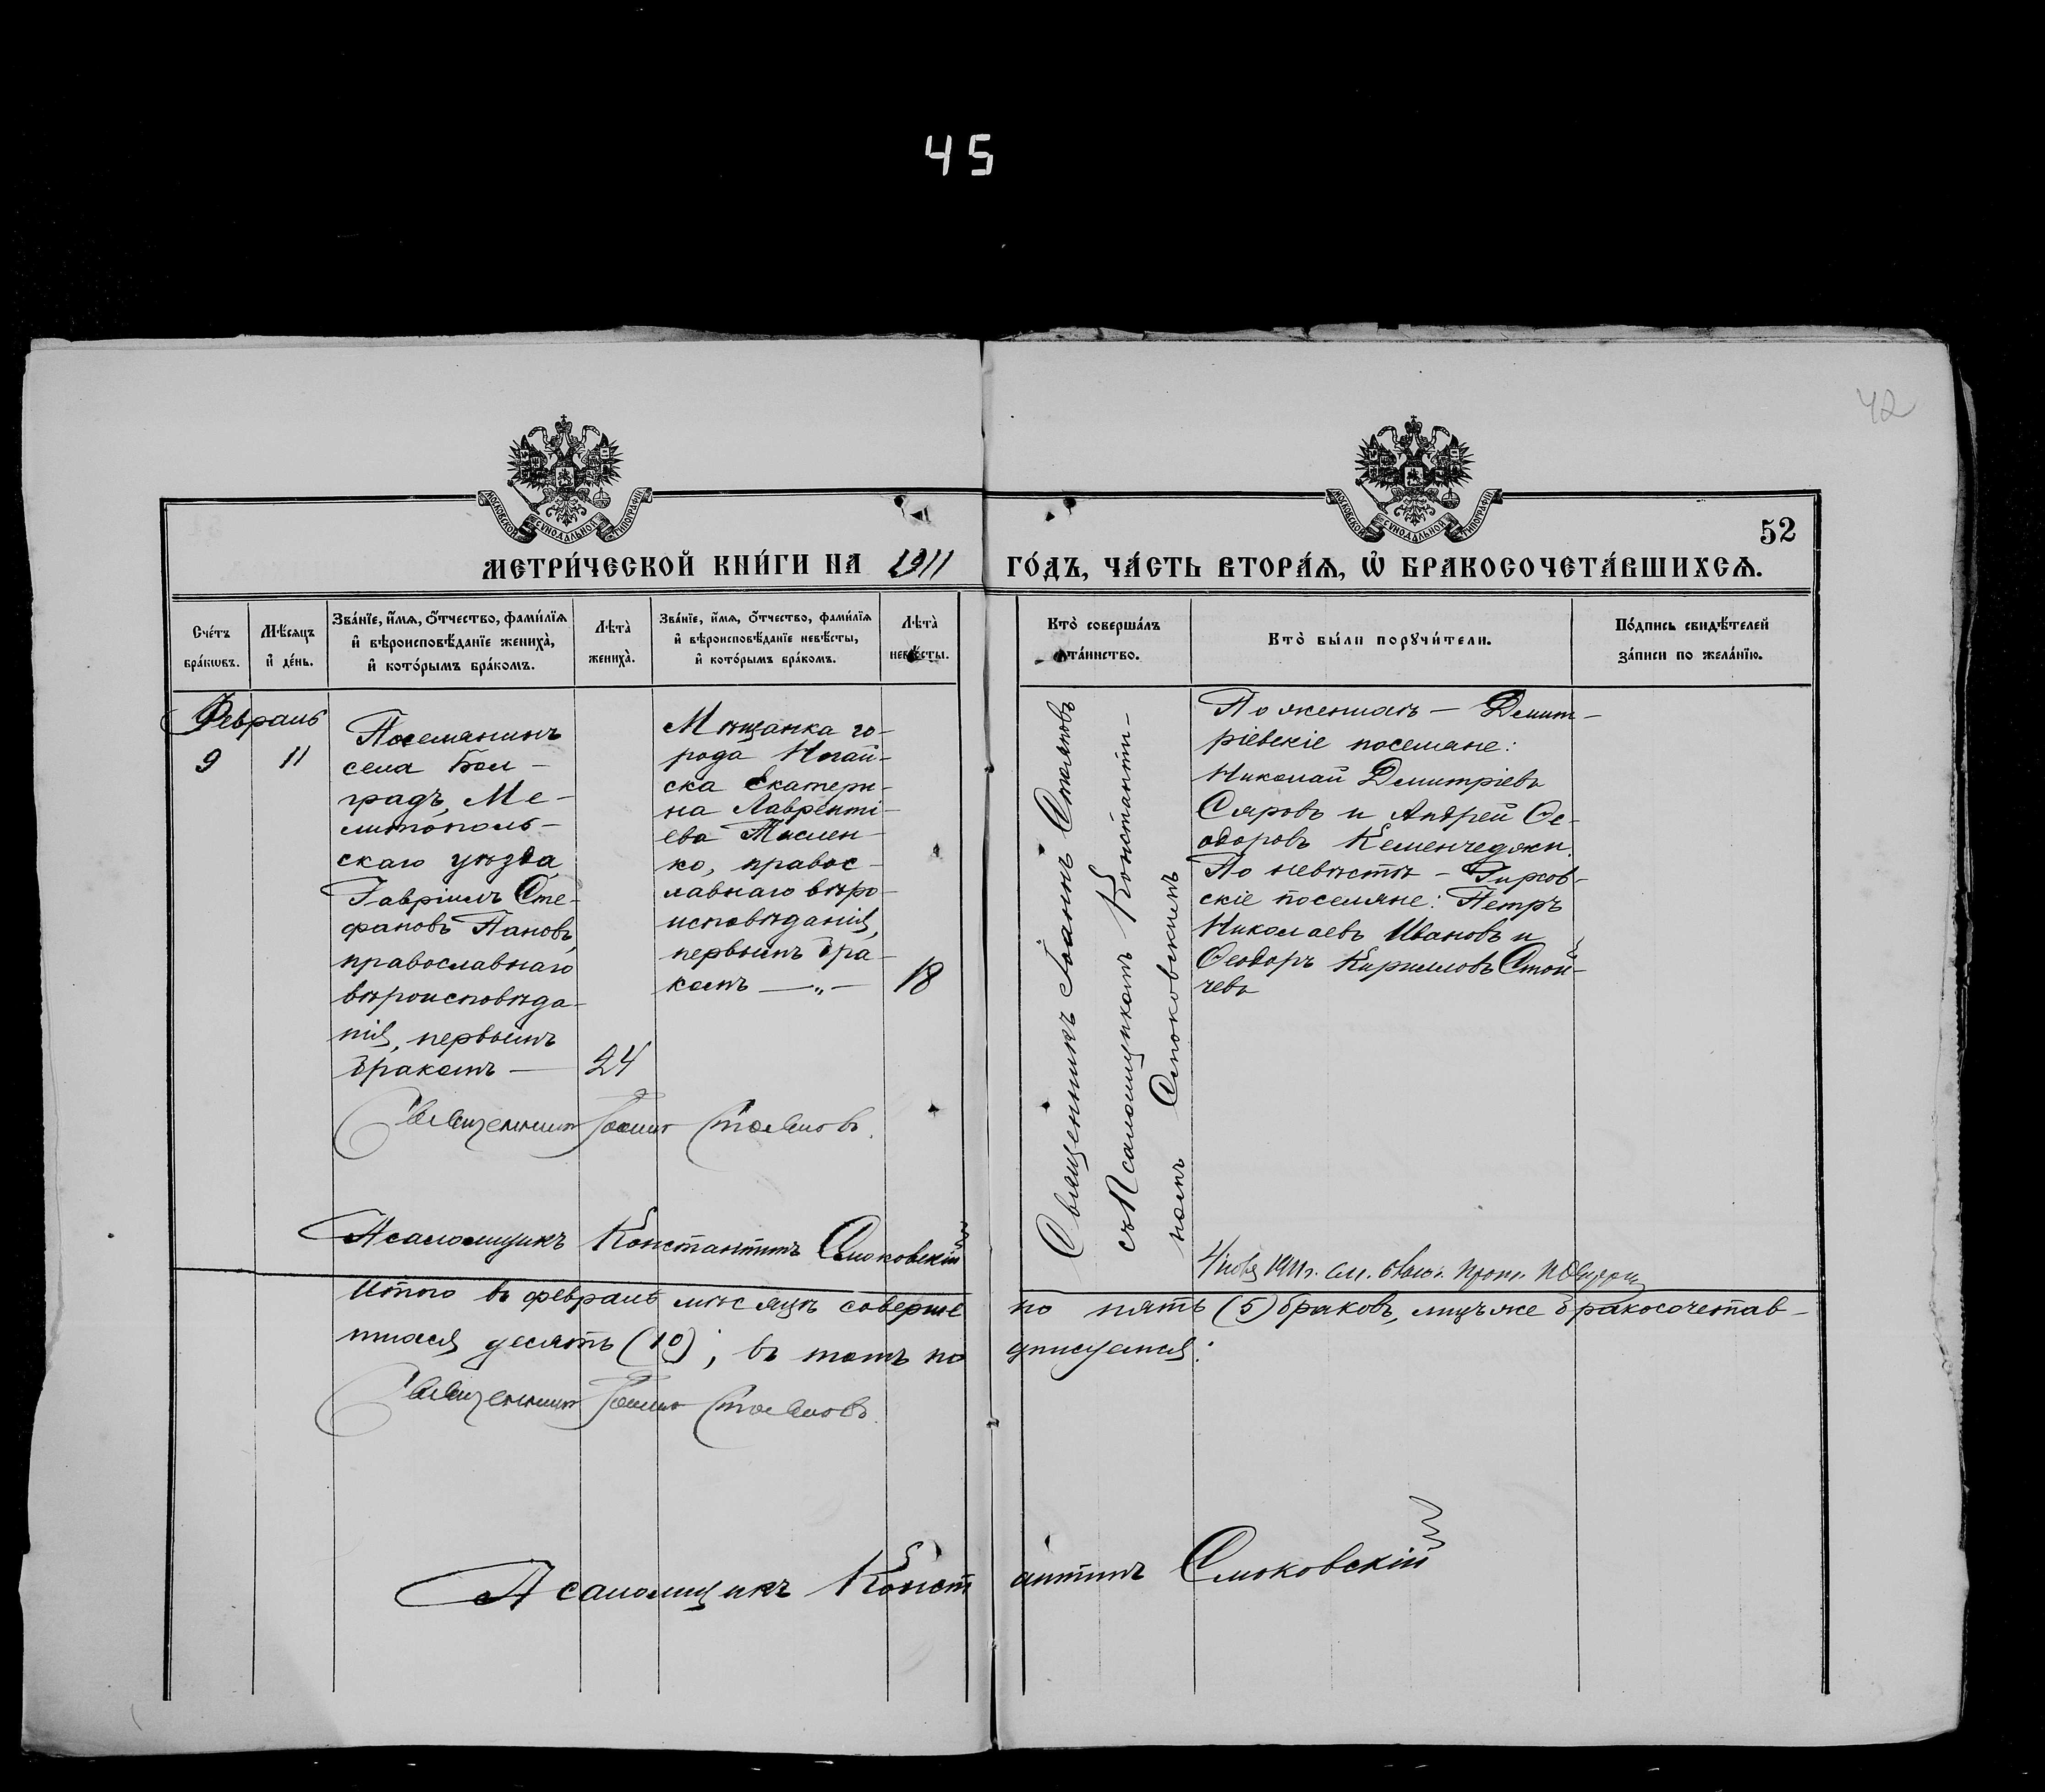 45
42
МОСКОВСКОЙ СѴНОДАЛЬНОЙ ТИПОГРАФІИ
МОСКОВСКОЙ СѴНОДАЛЬНОЙ ТИПОГРАФІИ
52
МЕТРИ́ЧЕСКОЙ КНИ́ГИ НА 1911 ГО́ДЪ, ЧА́СТЬ ВТОРА́Ѧ, Ѽ БРАКОСОЧЕТА́ВШИХСѦ.
Сче́тъ
бра́кѡвъ.
Мѣ́сѧцъ
и҆ де́нь.
Зва́нїе, и҆́мѧ, ѻ҆́тчество, фамі́лїѧ
и҆ вѣроисповѣ́данїе жениха̀,
и҆ кото́рымъ бра́комъ.
Лѣта̀
жениха̀.
Зва́нїе, и҆́мѧ, ѻ҆́тчество, фамі́лїѧ
и҆ вѣроисповѣ́данїе невѣ́сты,
и҆ кото́рымъ бра́комъ.
Лѣта̀
невѣ́сты.
Кто̀ соверша́лъ
та́инство.
Кто̀ бы́ли порꙋчи́тели.
По́дпись свидѣ́телей
за́писи по жела́нїю.
Февраль
9
11
Поселянинъ
села Бол-
градъ, Ме-
литополь-
скаго уѣзда,
Гавріилъ Сте-
фановъ Пановъ,
православнаго
вѣроисповѣда-
нія, первымъ
бракомъ —
24
Мѣщанка го-
рода Ногай-
ска Екатери-
на Лавренті-
ева Тислен-
ко, правос-
лавнаго вѣро-
исповѣданія,
первымъ бра-
комъ —„—
18
Священникъ Іоаннъ Стояновъ
съ Псаломщикомъ Константи-
номъ Смоковскимъ
По женихѣ — Димит-
ріевскіе поселяне:
Николай Димитріевъ
Сяровъ и Андрей Ѳе-
одоровъ Кеменчеджи.
По невѣстѣ — Гирсов-
скіе поселяне: Петръ
Николаевъ Ивановъ и
Ѳеодоръ Кирилловъ Стой-
чевъ
Священникъ Іоаннъ Стояновъ.
Псаломщикъ Константинъ Смоковскій
1911 г.
Итого въ февралѣ мѣсяцѣ соверше но пять (5) браковъ, лицъ же бракосочетав-
шихся десять (10); въ томъ по дписуемся:
Священникъ Іоаннъ Стояновъ.
Псаломщикъ Конст антинъ Смоковскій